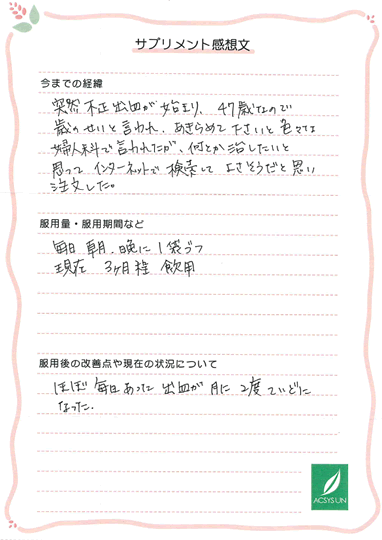 サプリメント感想文
今までの経緯
突然 不正出血が始まり、47歳なので
歳のせいと言われ、あきらめて下さいと色々な
婦人科で言われたが、何とか治したいと
思って インターネットで 検索して よさそうだと思い
注文した。
服用量・服用期間など
毎日 朝、晩に 1袋づつ
現在 3ヶ月程 飲用
服用後の改善点や現在の状況について
ほぼ 毎日あった 出血が 月に 2度 ていどに
なった。
ACSYSUN